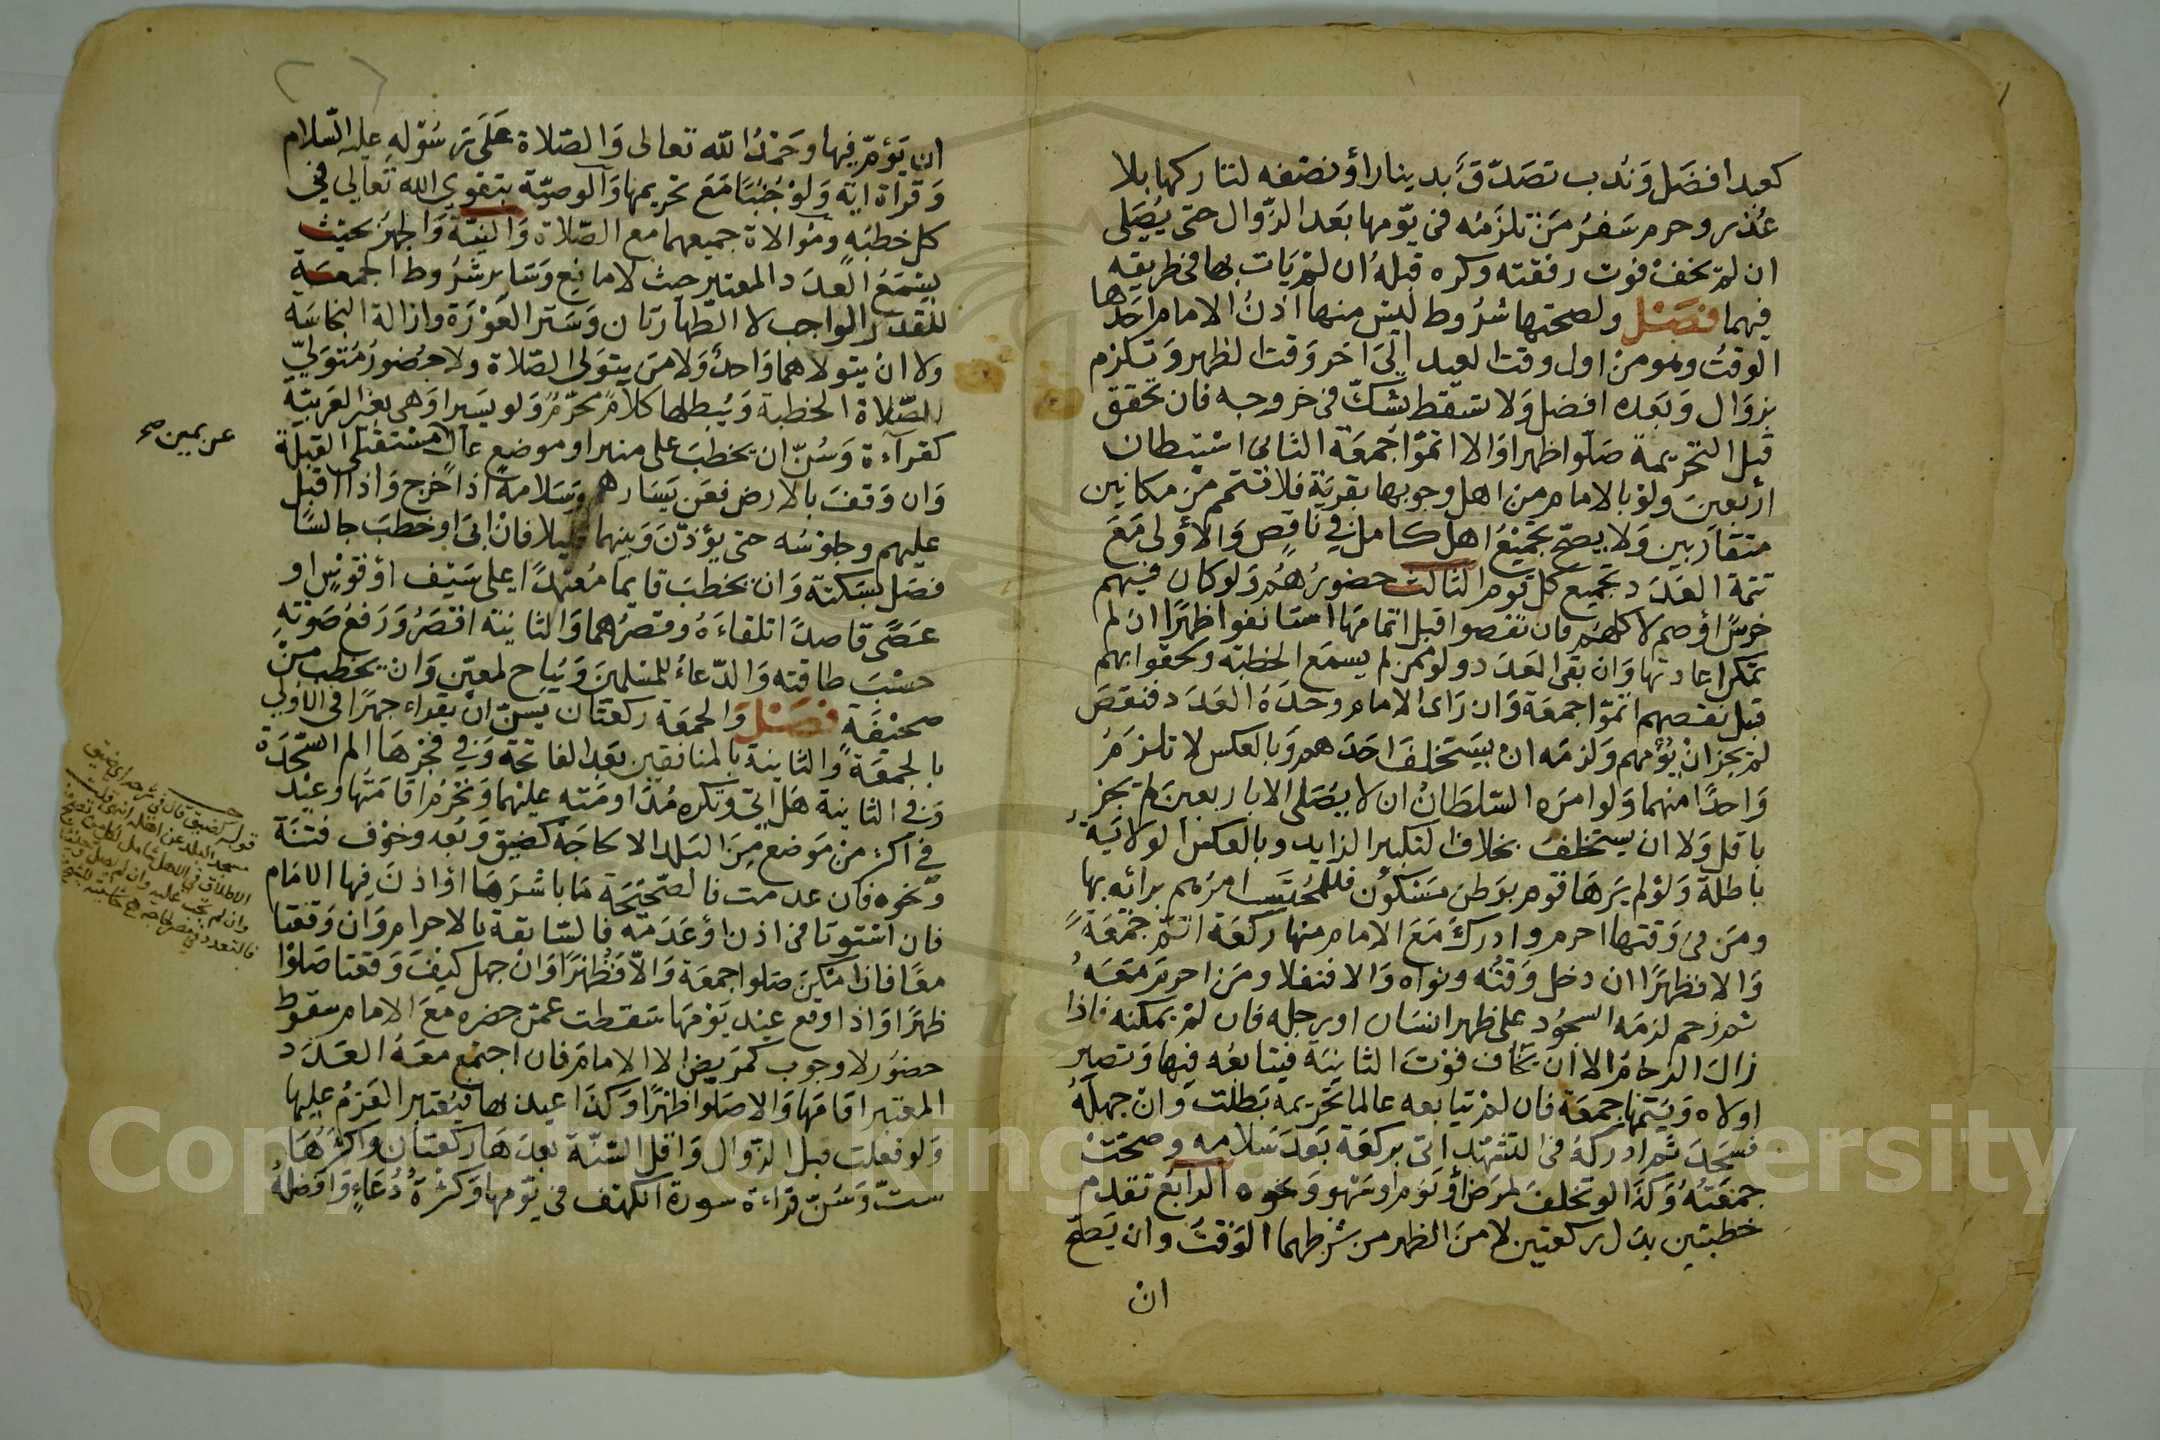 كعبد افضل وندب تصدق بدينار أو نصفه لتاركها بلا
عذر وحرم سفر من تلزمه في يومها بعد الزوال حتى يصلى
ان لم يخف فوت رفقته وكره قبله ان لم يات بها في طريقه
فيهما فصل ولصحتها شروط ليس منها اذن الامام احدها
الوقت وهو من اول وقت العيد الى اخر وقت الظهر وتلزم
بزوال وبعده افضل ولا تسقط بشك في خروجه فان تحقق
قبل التحريمة صلوا ظهرا والا اتموا جمعة الثانى استيطان
اربعين ولو بالامام من اهل وجوبها بقرية فلا تتم من مكانين
متقاربين ولا يصح تجميع اهل كامل في ناقص والأولى مع
تتمة العدد تجميع كل قوم الثالث حضورهم ولو كان فيهم
خرس أو صم لا كلهم فان نقصوا قبل اتمامها استانفوا ظهرا ان لم
تمكن اعادتها وان بقى العدد ولو ممن لم يسمع الخطبة ولحقوا بهم
قبل نقصهم اتموا جمعة وان راى الامام وحده العدد فنقص
لم يجز ان يؤمهم ولزمه ان يستخلف احدهم وبالعكس لا تلزم
واحدا منهما ولو امره السلطان ان لا يصلى الا باربعين لم يجز
باقل ولا ان يستخلف بخلاف التكبير الزايد وبالعكس الولاية
باطلة ولو لم يرها قوم بوطن مسكون فللمحتسب امرهم برائه بها
ومن في وقتها احرم وادرك مع الامام منها ركعة اتم جمعة
والا فظهرا ان دخل وقته ونواه والا فنفلا ومن احرم معه
ثم زحم لزمه السجود على ظهر انسان او رجله فان لم يمكنه فاذا
زال الزحام الا ان يخاف فوت الثانية فيتابعه فيها وتصير
اولاه ويتمها جمعة فان لم يتابعه عالما تحريمه بطلت وان جهله
فسجد ثم ادركه في التشهد اتى بركعة بعد سلامه وصحت
جمعته وكذا لو تخلف لمرض أو نوم او سهو ونحوه الرابع تقدم
خطبتين بدل ركعتين لا من الظهر من شرطهما الوقت وان يصح
ان
ان يؤم فيها وحمد الله تعالى والصلاة على رسوله عليه السلام
وقراة اية ولو جنبا مع تحريمها والوصية بتقوى الله تعالى في
كل خطبه وموالاة جميعهما مع الصلاة والنية والجهر بحيث
يسمع العدد المعتبر حيث لا مانع وسائر شروط الجمعة
للقدر الواجب لا الطهارتان وستر العورة وازالة النجاسه
ولا ان يتولاهما واحد ولا من يتولى الصلاة ولا حضور متولي
الصلاة الخطبة ويبطلها كلام محرم ولو يسيرا وهى بغير العربية
كقرآءة وسن ان يخطب على منبر او موضع عال مستقبلى القبلة
عن يمين صح
وان وقف بالارض فعن يسارهم وسلامه اذا خرج واذا اقبل
عليهم وجلوسه حتى يؤذن وبينهما قليلا فان ابى او خطب جالسا
فصل بسكتة وان يخطب قايما معتمدا على سيف أو قوس او
عصى قاصدا تلقاءه وقصرهما والثانية اقصر ورفع صوته
حسب طاقته والدعاء للمسلمين ويباح لمعين وان يخطب من
صحيفة فصل والجمعة ركعتان يسن ان يقراء جهرا في الاولى
بالجمعة والثانية بالمنافقين بعد الفاتحة وفي فجرها الم السجدة
وفي الثانية هل اتى وتكره مداومته عليهما وتحرم اقامتها وعيد
في اكثر من موضع من البلد الا لحاجة كضيق وبعد وخوف فتنة
ونحوه فان عدمت فالصحيحة ما باشرها أو اذن فيها الامام
فان استوتا في اذن أو عدمه فالسابقة بالاحرام وان وقعتا
معا فان امكن صلوا جمعة والا فظهرا وان جهل كيف وقعتا صلوا
ظهرا واذا وقع عيد يومها سقطت عمن حضره مع الامام سقوط
حضور لا وجوب كمريض الا الامام فان اجتمع معه العدد
المعتبر اقامها والا صلوا ظهرا وكذا عيد بها فيعتبر العزم عليها
ولو فعلت قبل الزوال واقل السنة بعدها ركعتان واكثرها
ست وسن قراءة سورة الكهف في يومها وكثرة دعاء وافضله
قوله كضيق قال في شرحه اي ضيق
مسجد البلد عن اهله انتهى قلت
Copyright © King Saud University